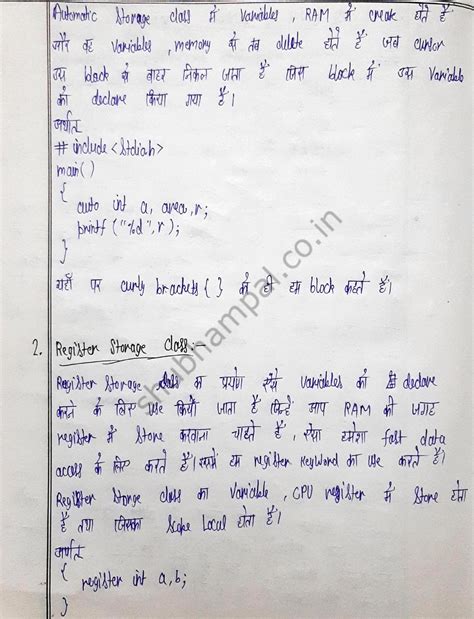 Automatic Storage class में variables , RAM में create होते हैं
और वह variables , memory से तब delete होते हैं जब cursor
उस block से बाहर निकल जाता है जिस block में उस variable
को declare किया गया है।
अर्थात्
# include <Stdioh>
main()
{
auto int a, area, r;
printf ("%d", r);
}
यहाँ पर curly brackets { } को ही हम block कहते हैं।
2. Register Storage Class:-
Register Storage class का प्रयोग ऐसे variables को declare
करने के लिए use किया जाता है जिन्हें आप RAM की जगह
register में Store करवाना चाहते हैं, ऐसा हमेशा fast data
access के लिए करते हैं। इसमें हम register Keyword का use करते हैं।
Register Storage class का variable , CPU register में Store होता
है तथा जिसका Scope Local होता है।
अर्थात्
{
register int a, b;
}
shubhampal.co.in